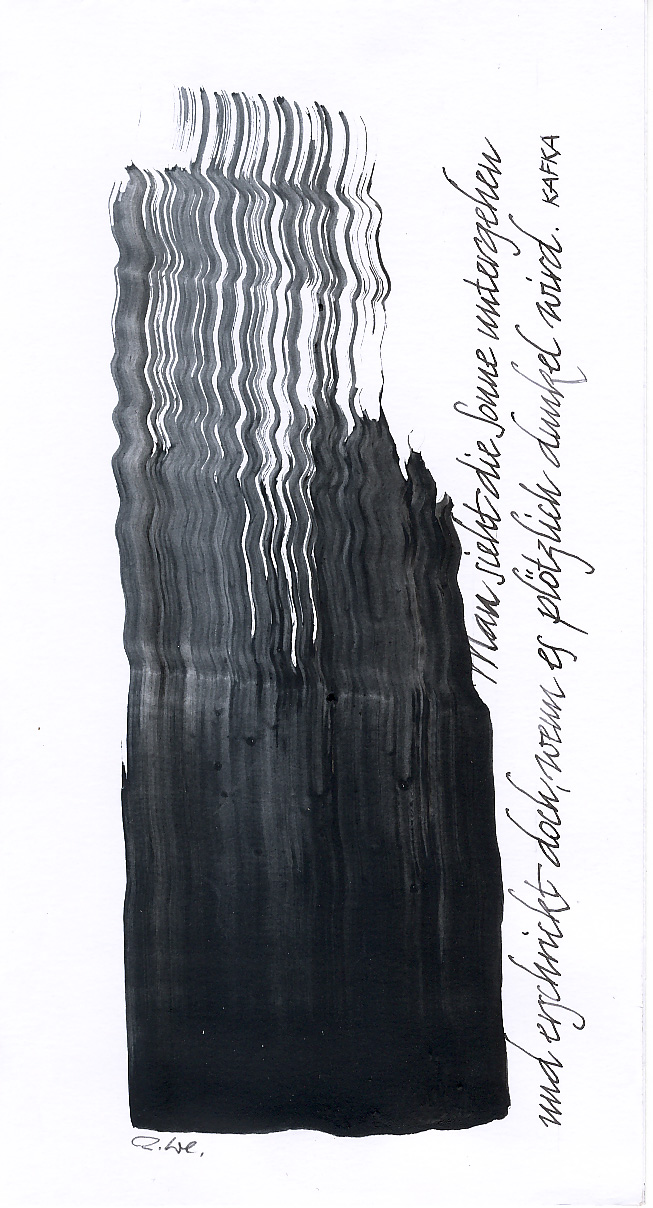 Man sieht die Sonne untergehen
und erschrickt doch, wenn es plötzlich dunkel wird. KAFKA